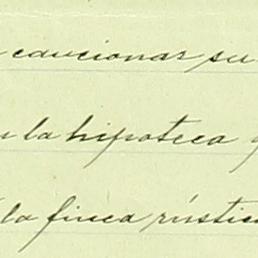 caucionar su
la hipoteca
la finca rústica